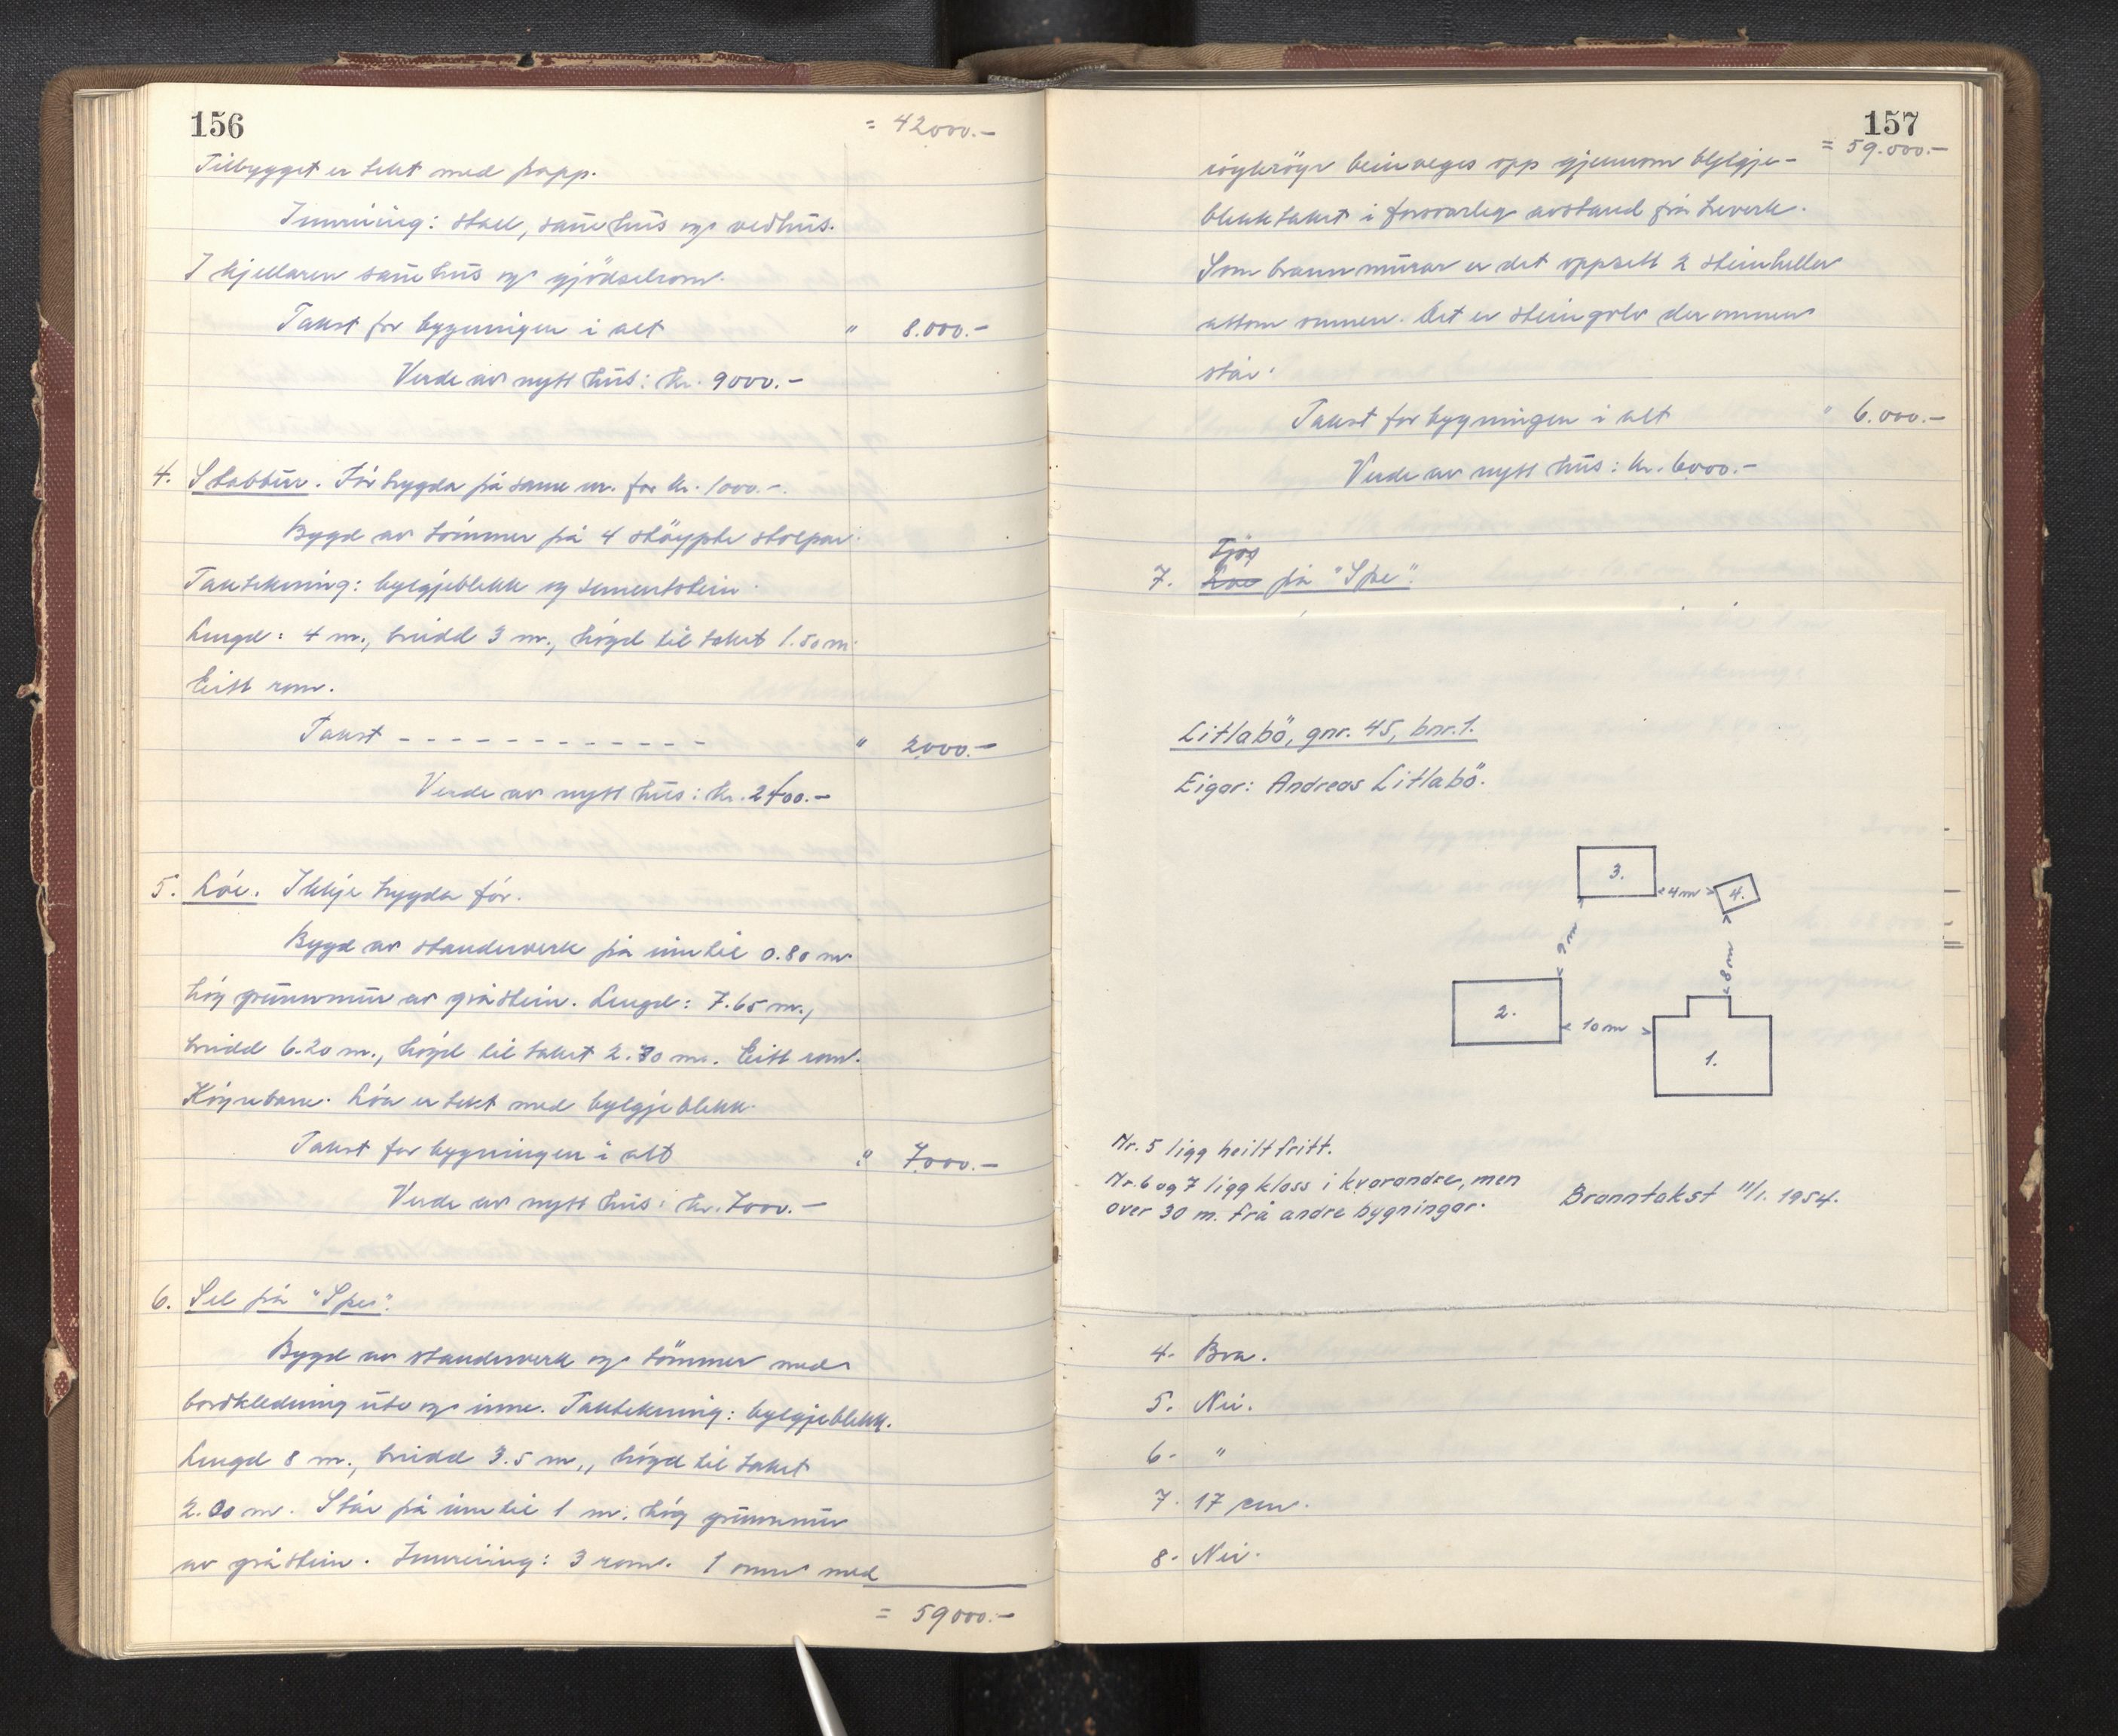 156
= 42000.-
Tilbygget er tekt med papp.
Innreiing: stall, sauehus og vedhus.
I kjellaren sauehus og gjödselrom.
Takst for bygningen i alt " 8.000.-
Verde av nytt hus: kr. 9000.-
4. Stabbur. För trygda på same nr. for kr. 1000.-.
Bygd av tömmer på 4 stöypte stolpar.
Taktekning: bylgjeblekk og sementstein.
Lengd: 4 m., breidd 3 m., högd til taket 1.50 m.
Eitt rom.
Takst - - - - - - - - - - - - - " 2000.-
Verde av nytt hus: kr. 2400.-
5. Löe. Ikkje trygda för.
Bygd av standerverk på inntil 0.80 m
hög grunnmur av gråstein. Lengd: 7.65 m.,
breidd 6.20 m., högd til taket 2.30 m. Eitt rom.
Köyrebane. Löa er tekt med bylgjeblekk.
Takst for bygningen i alt " 7.000.-
Verde av nytt hus: kr. 7000.-
6. Sel på "Spei".
Bygd av standerverk og tömmer med
bordkledning ute og inne. Taktekning: bylgjeblekk.
Lengd 8 m., breidd 3.5 m., högd til taket
2.00 m. Står på inntil 1 m. hög grunnmur
av gråstein. Innreiing: 3 rom. 1 omn med
= 59000.-
157
= 59.000.-
röykröyr beinveges opp gjennom bylgje-
blekktaket i forsvarleg avstand frå treverk.
Som brannmurar er det oppsett 2 steinheller
attom omnen. Det er steingolv der omnen
står.
Takst for bygningen i alt " 6.000.-
Verde av nytt hus: kr. 6000.-
Fjös
7. Löe på "Spe".
Litlabö, gnr. 45, bnr. 1.
Eigar: Andreas Litlabö.
3.
4 m
4.
9 m
8 m
2.
10 m
1.
Nr. 5 ligg heilt fritt.
Nr. 6 og 7 ligg kloss i kvarandre, men
over 30 m. frå andre bygningar.
Branntakst 11/1. 1954.
4. Bra.
5. Nei.
6. "
7. 17 cm.
8. Nei.